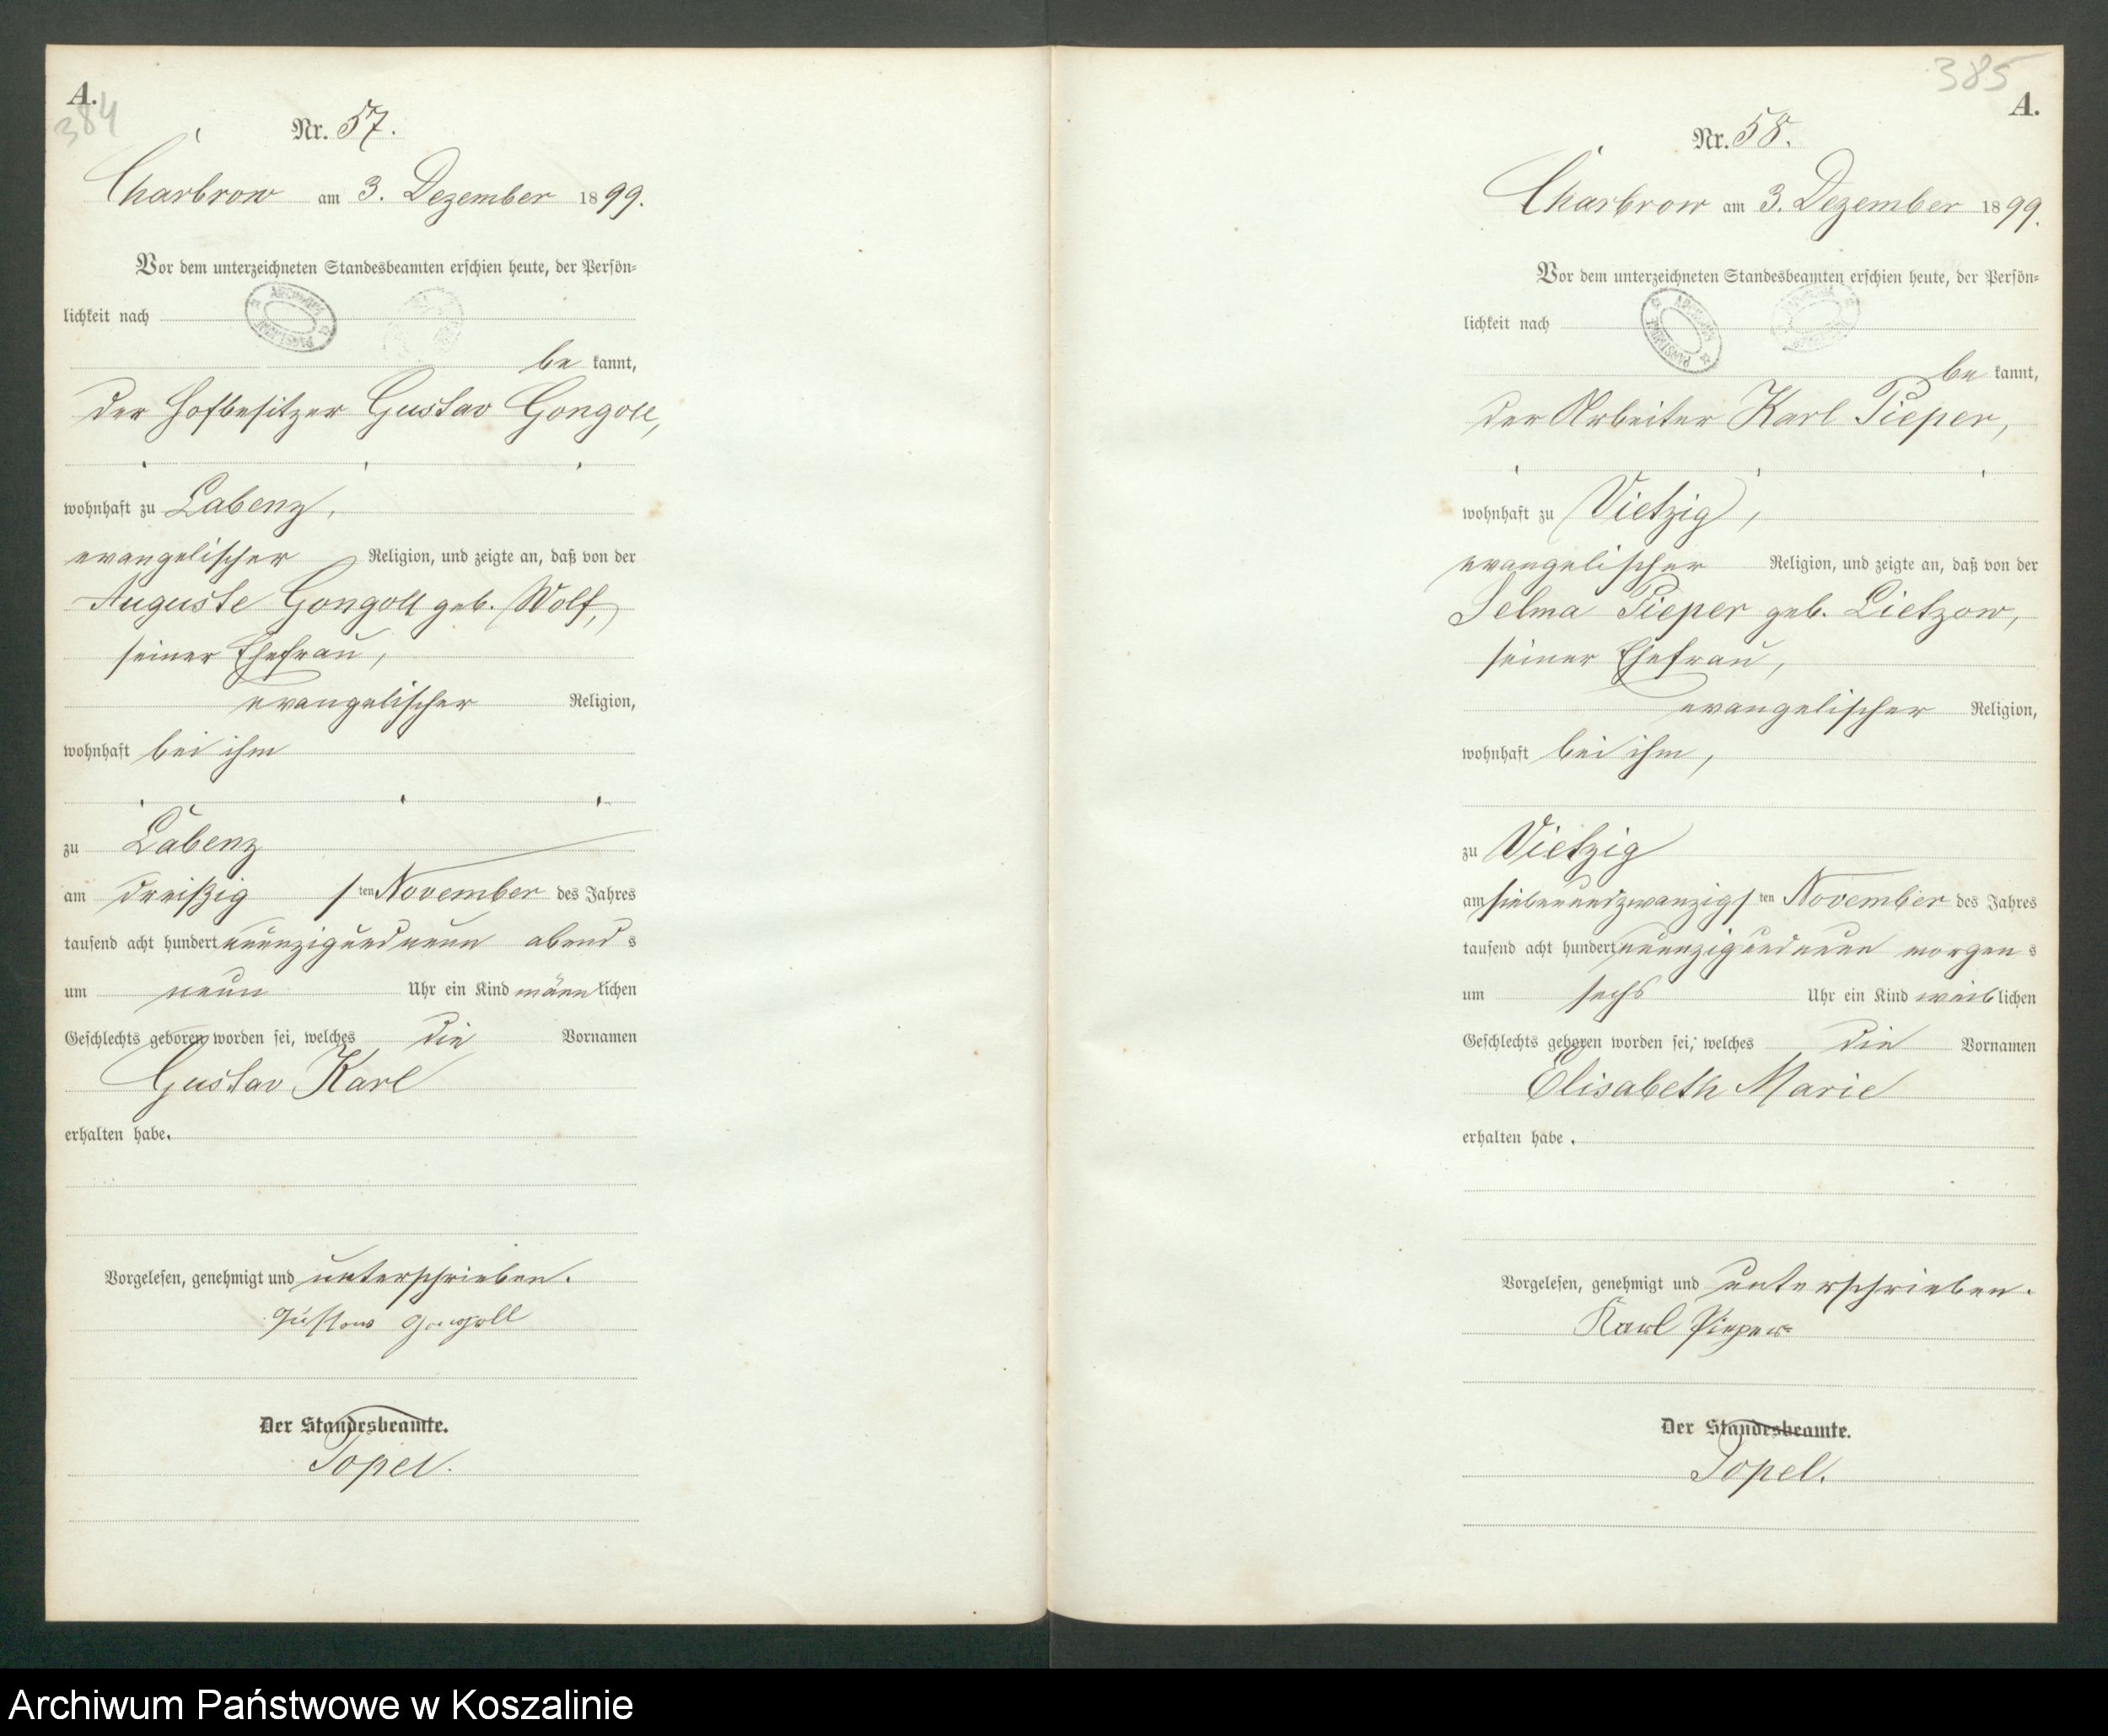 A.
384
Nr. 57.
Charbrow am 3. Dezember 1899.
Vor dem unterzeichneten Standesbeamten erschien heute, der Persön-
lichkeit nach
be kannt,
der Hofbesitzer Gustav Gongoll,
wohnhaft zu Labenz,
evangelischer Religion, und zeigte an, daß von der
Auguste Gongoll geb. Wolf,
seiner Ehefrau,
evangelischer Religion,
wohnhaft bei ihm
zu Labenz
am dreißigsten November des Jahres
tausend acht hundert neunzig und neun abends
um neun Uhr ein Kind männlichen
Geschlechts geboren worden sei, welches die Vornamen
Gustav Karl
erhalten habe.
Vorgelesen, genehmigt und unterschrieben.
Gustav Gongoll
Der Standesbeamte.
Topel.
385
A.
Nr. 58.
Charbrow am 3. Dezember 1899.
Vor dem unterzeichneten Standesbeamten erschien heute, der Persön-
lichkeit nach
be kannt,
der Arbeiter Karl Pieper,
wohnhaft zu Vietzig,
evangelischer Religion, und zeigte an, daß von der
Selma Pieper geb. Lietzow,
seiner Ehefrau,
evangelischer Religion,
wohnhaft bei ihm,
zu Vietzig
am siebenundzwanzigsten November des Jahres
tausend acht hundert neunzig und neun morgens
um sechs Uhr ein Kind weiblichen
Geschlechts geboren worden sei, welches die Vornamen
Elisabeth Marie
erhalten habe.
Vorgelesen, genehmigt und unterschrieben.
Karl Pieper
Der Standesbeamte.
Topel.
Archiwum Państwowe w Koszalinie